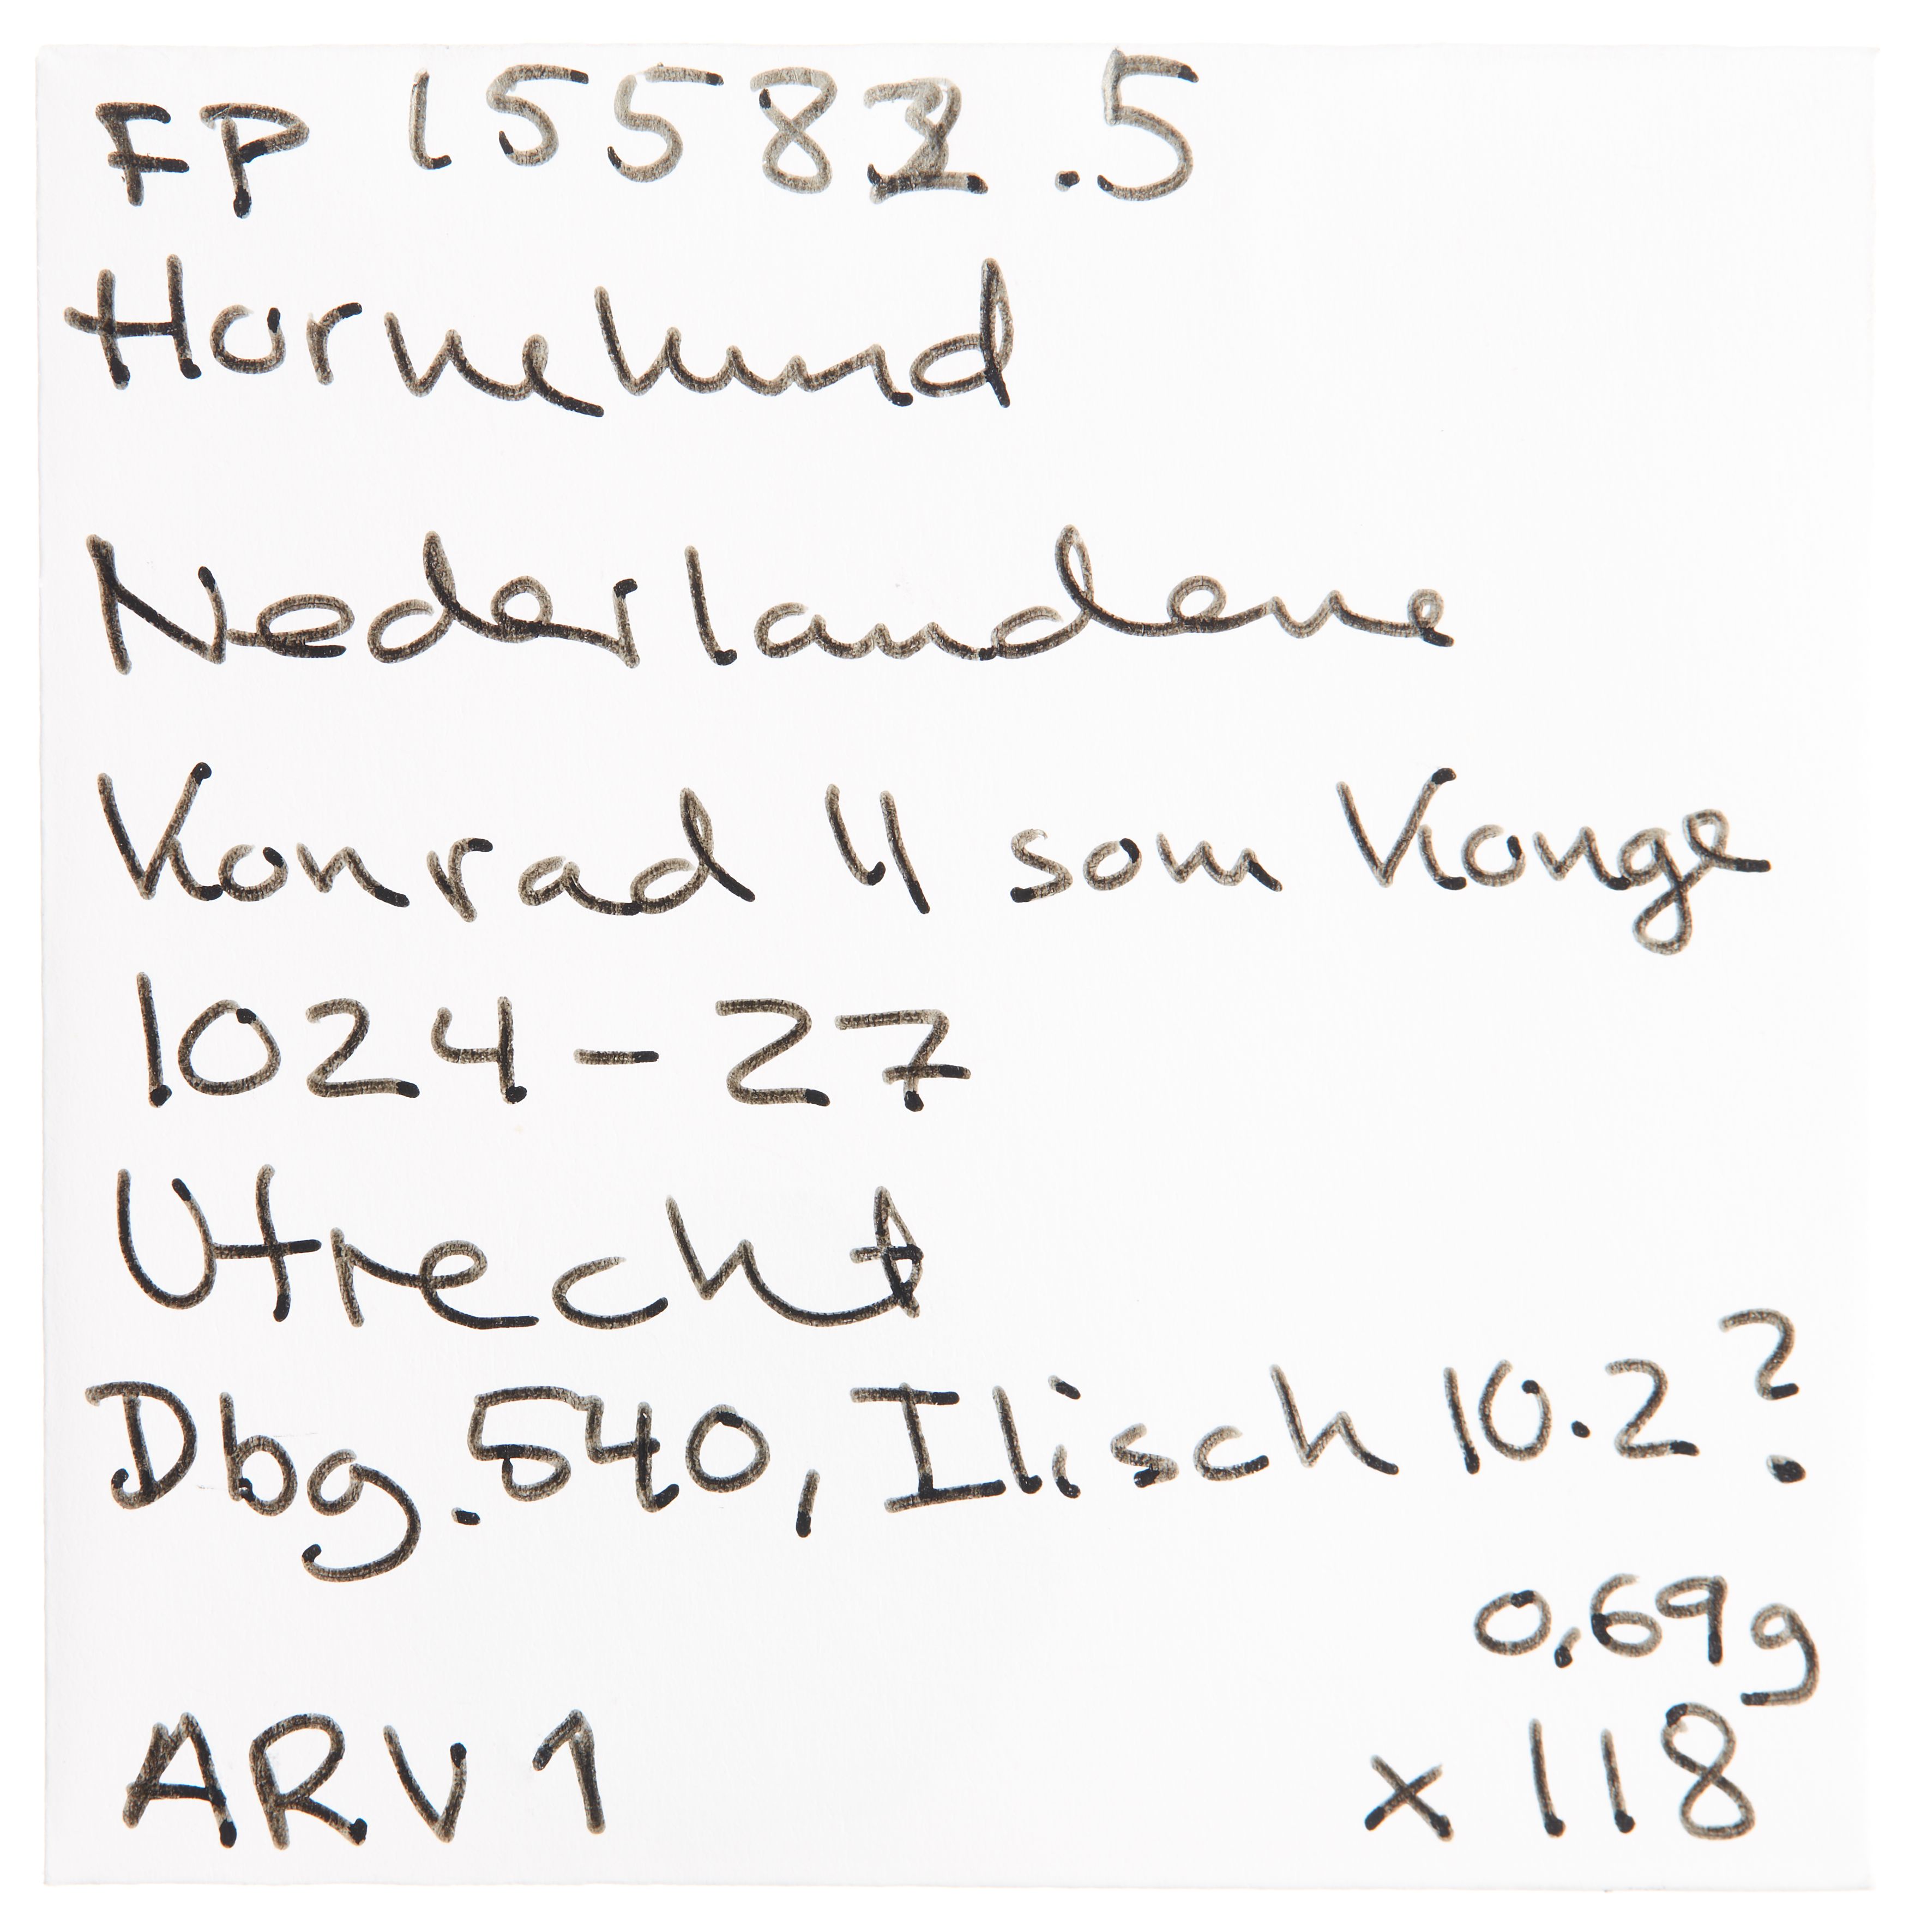 FP 15582.5
Hornelund
Nederlandene
Konrad II som Konge
1024-27
Utrecht
Dbg. 540, Ilisch 10.2?
0,69g
ARV 1 x 118